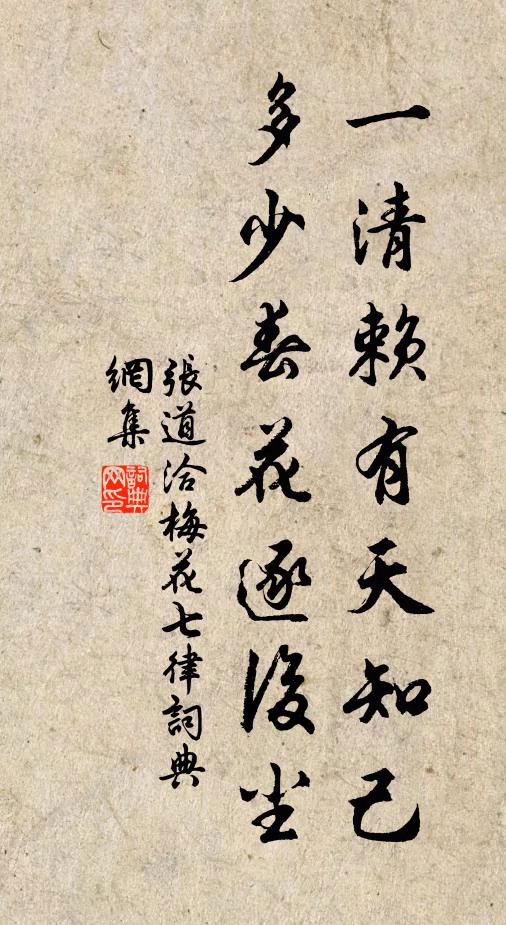 一清赖有天知己
多少春花逐後尘
張道洽梅花七律詞典
網集
詞典
网印